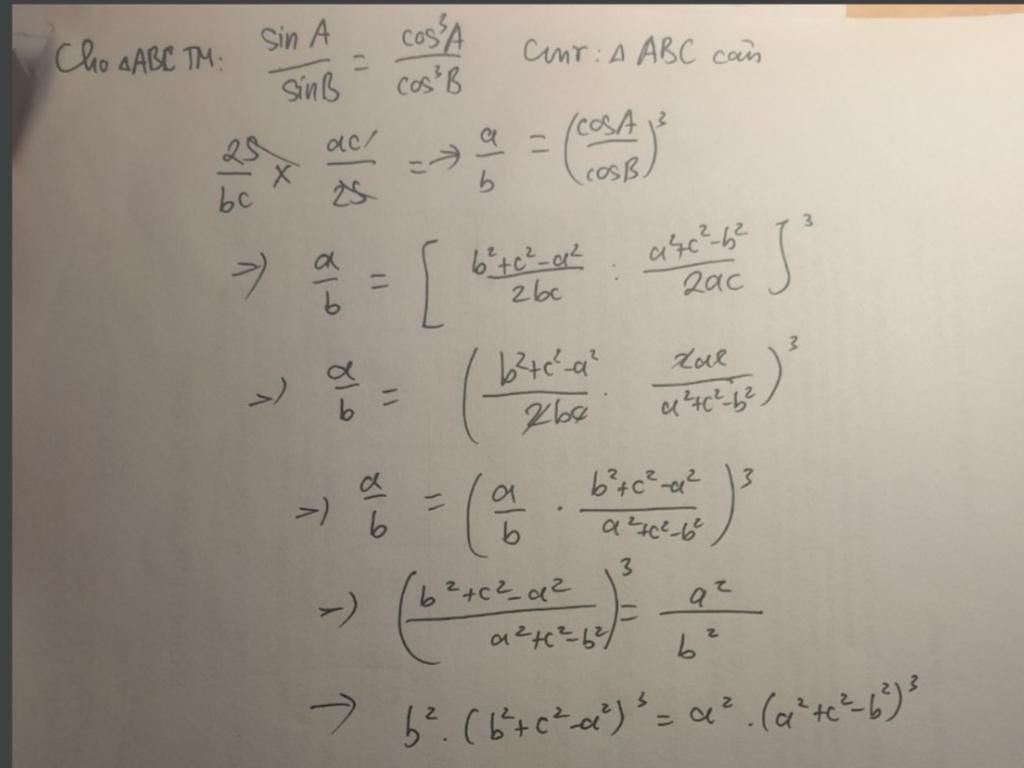 Cho △ABC TM: sin A / sin B = cos³A / cos³B Cmr: △ ABC cân
2S/bc × ac/2S =→ a/b = (cosA/cosB)³
=> a/b = [ (b²+c²-a²)/2bc : (a²+c²-b²)/2ac ]³
=> a/b = ( (b²+c²-a²)/2bc . 2ac/(a²+c²-b²) )³
=> a/b = ( a/b . (b²+c²-a²)/(a²+c²-b²) )³
=> ( (b²+c²-a²)/(a²+c²-b²) )³ = a²/b²
→ b² . (b²+c²-a²)³ = a² . (a²+c²-b²)³